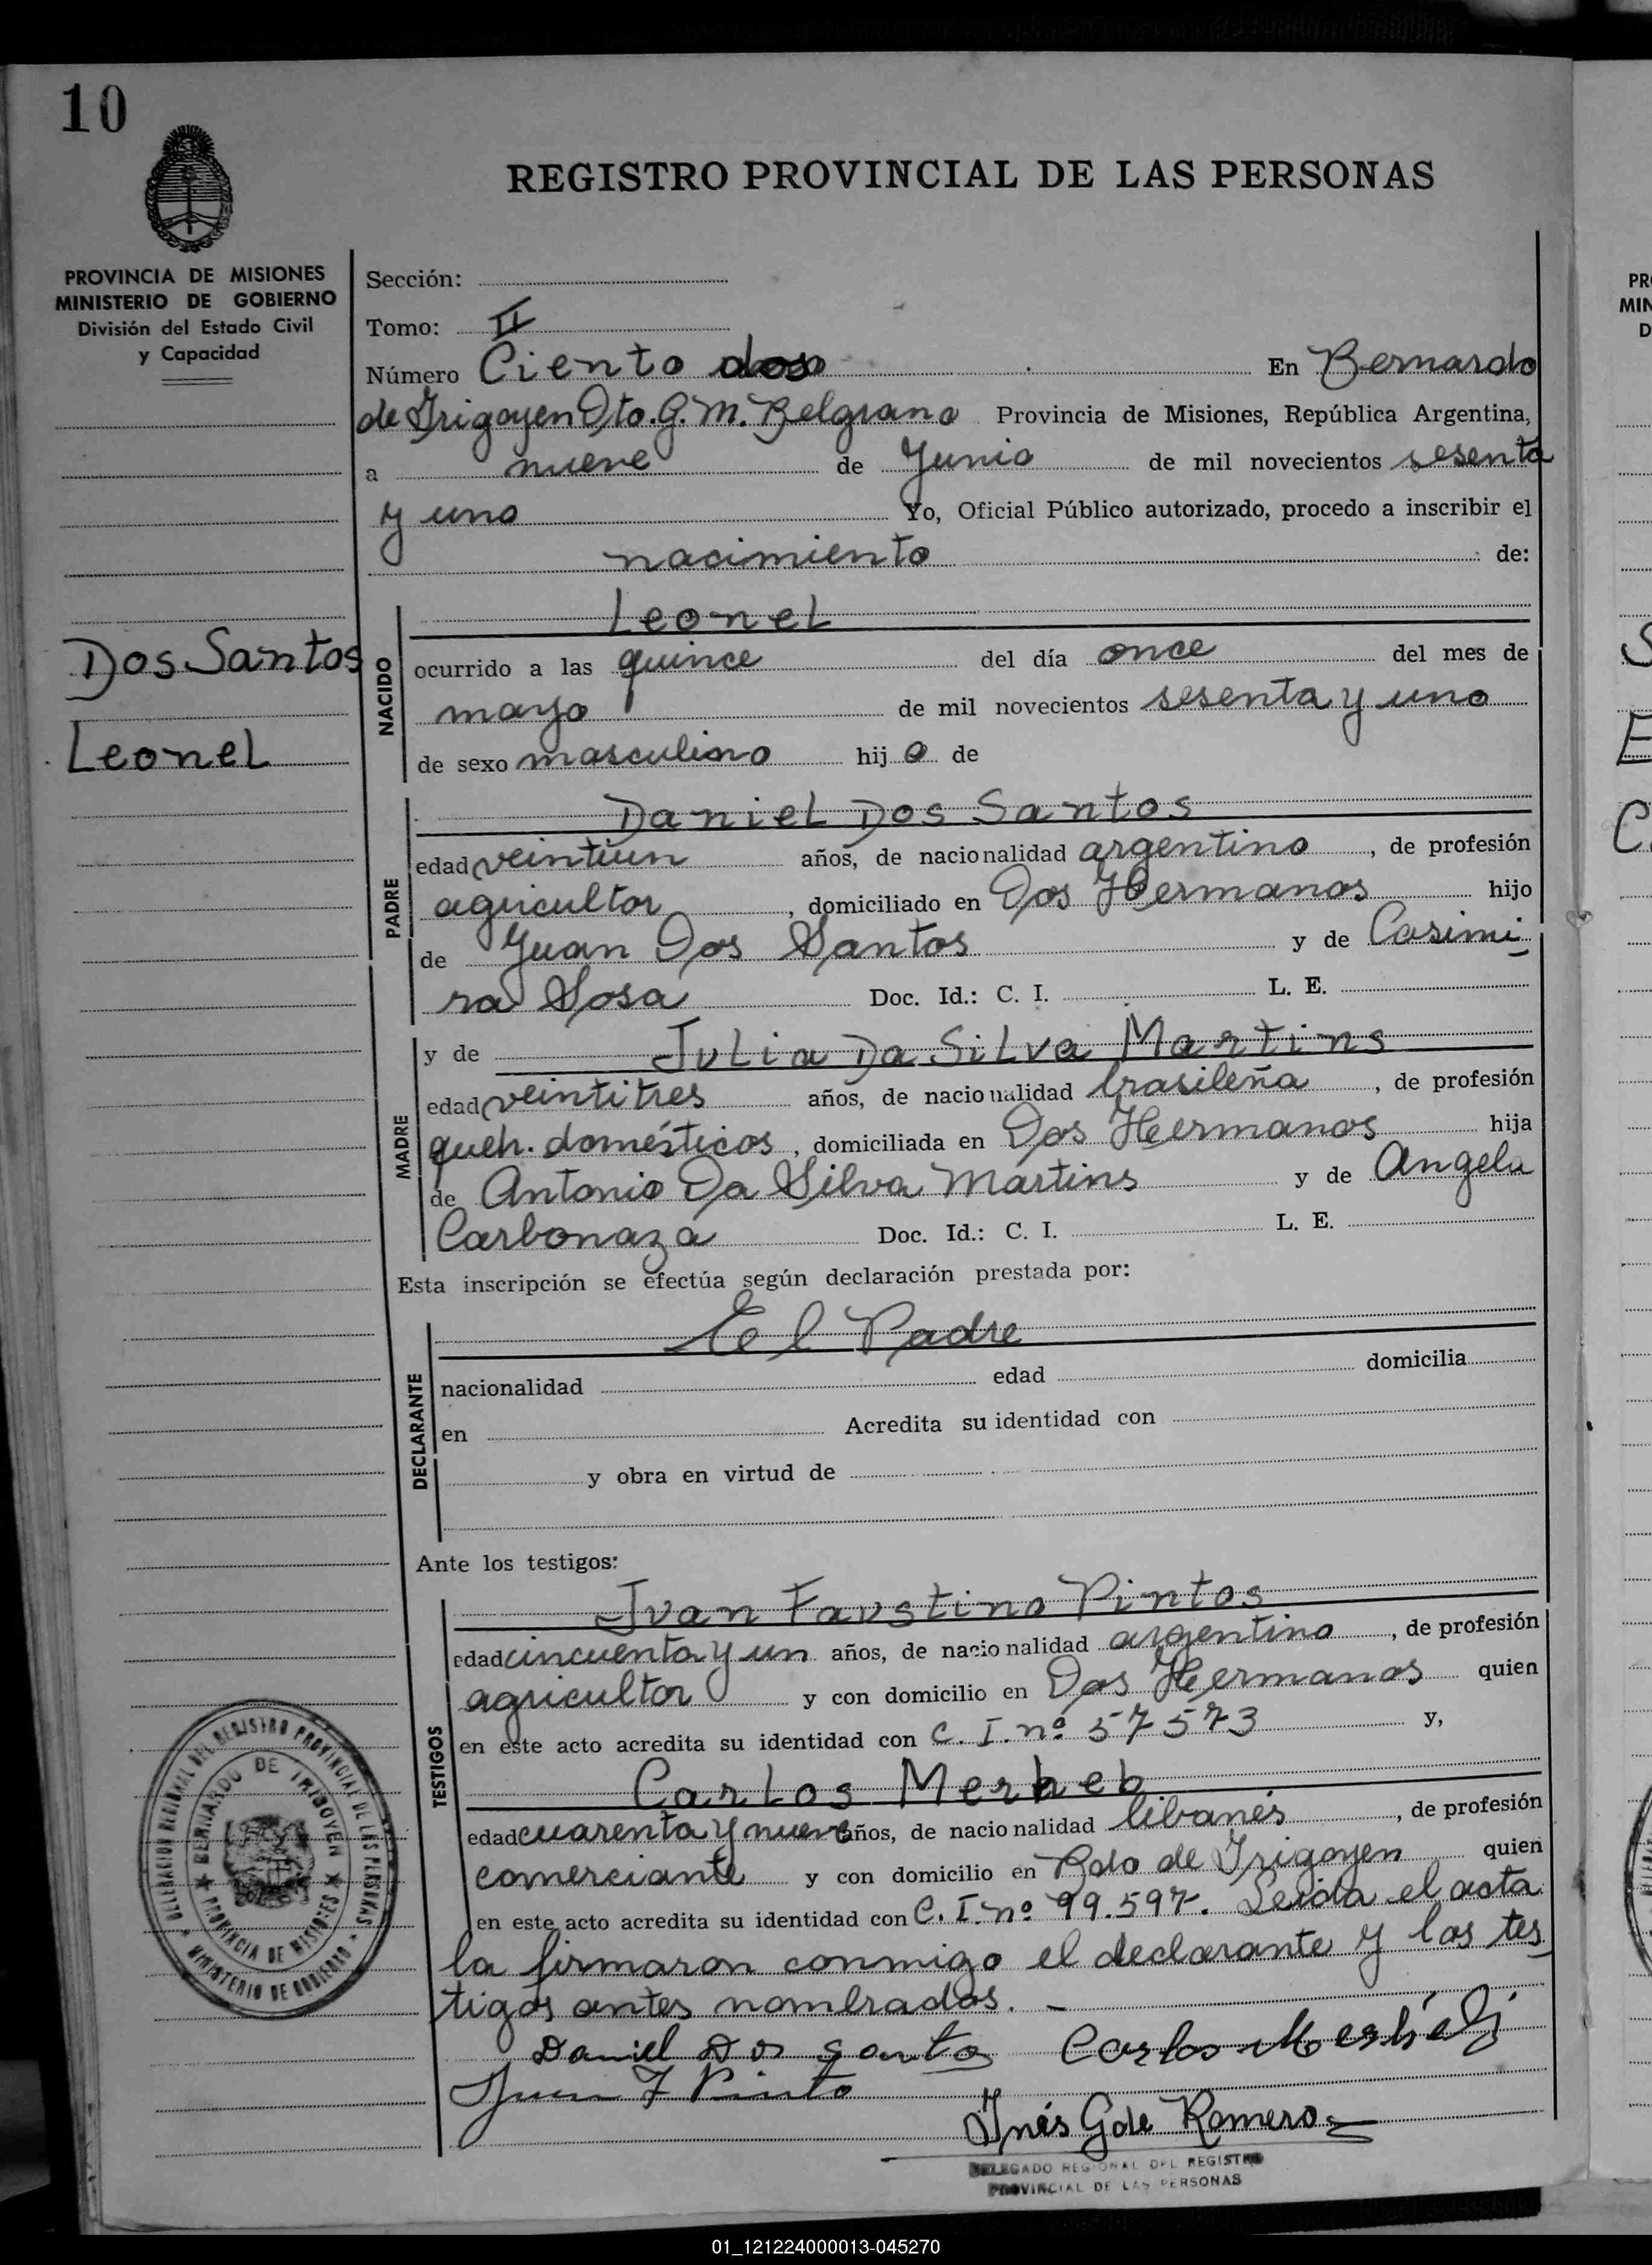 10
REGISTRO PROVINCIAL DE LAS PERSONAS
PROVINCIA DE MISIONES
MINISTERIO DE GOBIERNO
División del Estado Civil
y Capacidad
Sección:
Tomo: II
Número Ciento dos En Bernardo
de Irigoyen Dto. G. M. Belgrano Provincia de Misiones, República Argentina,
a nueve de Junio de mil novecientos sesenta
y uno Yo, Oficial Público autorizado, procedo a inscribir el
nacimiento de:
Dos Santos
Leonel
NACIDO
Leonel
ocurrido a las quince del día once del mes de
mayo de mil novecientos sesenta y uno
de sexo masculino hijo de
PADRE
Daniel Dos Santos
edad veintiun años, de nacionalidad argentino, de profesión
agricultor, domiciliado en Dos Hermanos hijo
de Juan Dos Santos y de Casimi
ra Sosa Doc. Id.: C. I. L. E.
MADRE
y de Julia Da Silva Martins
edad veintitres años, de nacionalidad brasileña, de profesión
queh. domésticos, domiciliada en Dos Hermanos hija
de Antonio Da Silva Martins y de Angela
Carbonaza Doc. Id.: C. I. L. E.
Esta inscripción se efectúa según declaración prestada por:
DECLARANTE
El Padre
nacionalidad edad domicilia
en Acredita su identidad con
y obra en virtud de
Ante los testigos:
TESTIGOS
Juan Faustino Pintos
edad cincuenta y un años, de nacionalidad argentino, de profesión
agricultor y con domicilio en Dos Hermanos quien
en este acto acredita su identidad con C. I. nº 57573 y,
Carlos Merheb
edad cuarenta y nueve años, de nacionalidad libanés, de profesión
comerciante y con domicilio en Bdo de Irigoyen quien
en este acto acredita su identidad con C. I. nº 99.597. Leida el acta
la firmaron conmigo el declarante y los tes
tigos antes nombrados. —
Daniel Dos Santos Carlos
Juan F Pinto
Inés G de Romero
DELEGADO REGIONAL DEL REGISTRO
PROVINCIAL DE LAS PERSONAS
DELEGACION REGIONAL DEL REGISTRO PROVINCIAL DE LAS PERSONAS
MINISTERIO DE GOBIERNO
BERNARDO DE IRIGOYEN
PROVINCIA DE MISIONES
PR
MIN
D
S
E
C
01_121224000013-045270